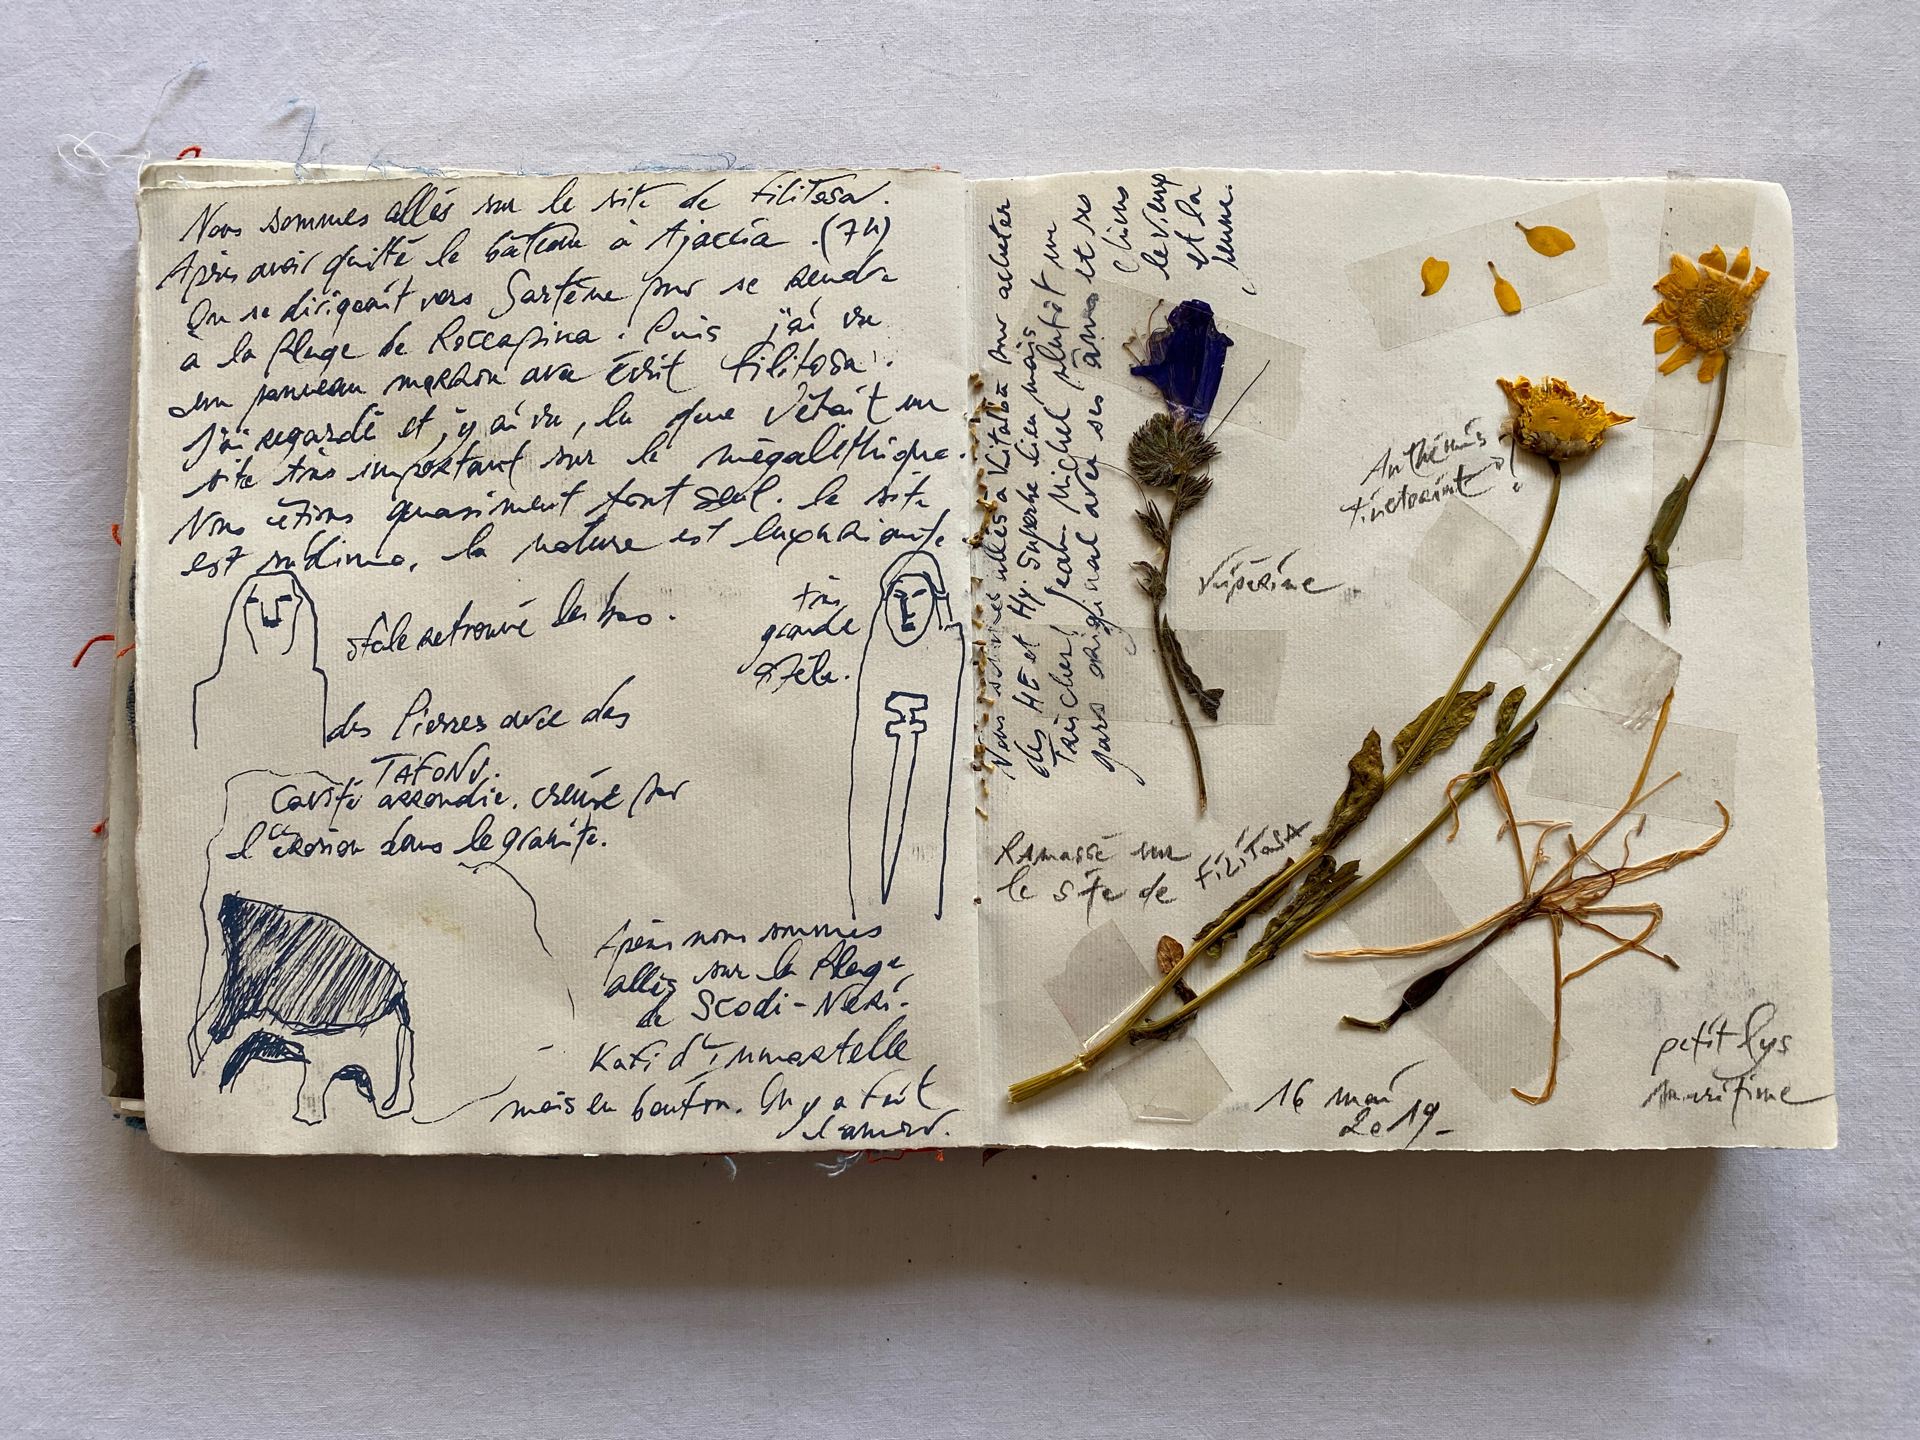 Nous sommes allés sur le site de Filitosa.
Après avoir quitté le bâteau à Ajaccio. (7H)
On se dirigeait vers Sartène pour se rendre
à la plage de Roccapina. Puis j'ai vu
un panneau marron avec écrit Filitosa.
J'ai regardé et j'y ai vu, lu que c'était un
site très important sur le mégalithique.
Nous étions quasiment tout seul. le site
est sublime, la nature est luxuriante.
très
grande
stèle.
stèle retrouvé là bas.
des Pierres avec des
TAFONI.
Cavité arrondie. creusé par
l'érosion dans le granite.
Après nous sommes
allés sur la plage
de Scodi-Neri.
d'immortelle
mais en bouton. On y a fait
l'amour.
Nous sommes allés à Vitalba pour acheter
des HE et Hy. Superbe lieu mais
Très cher! Jean-Michel plutôt un
gars original avec ses ânes et ses
chiens
le vieux
et la
jeune.
Vipérine
Anthémis
Ramassé sur
le site de FILITOSA
16 mai
2019
petit lys
maritime